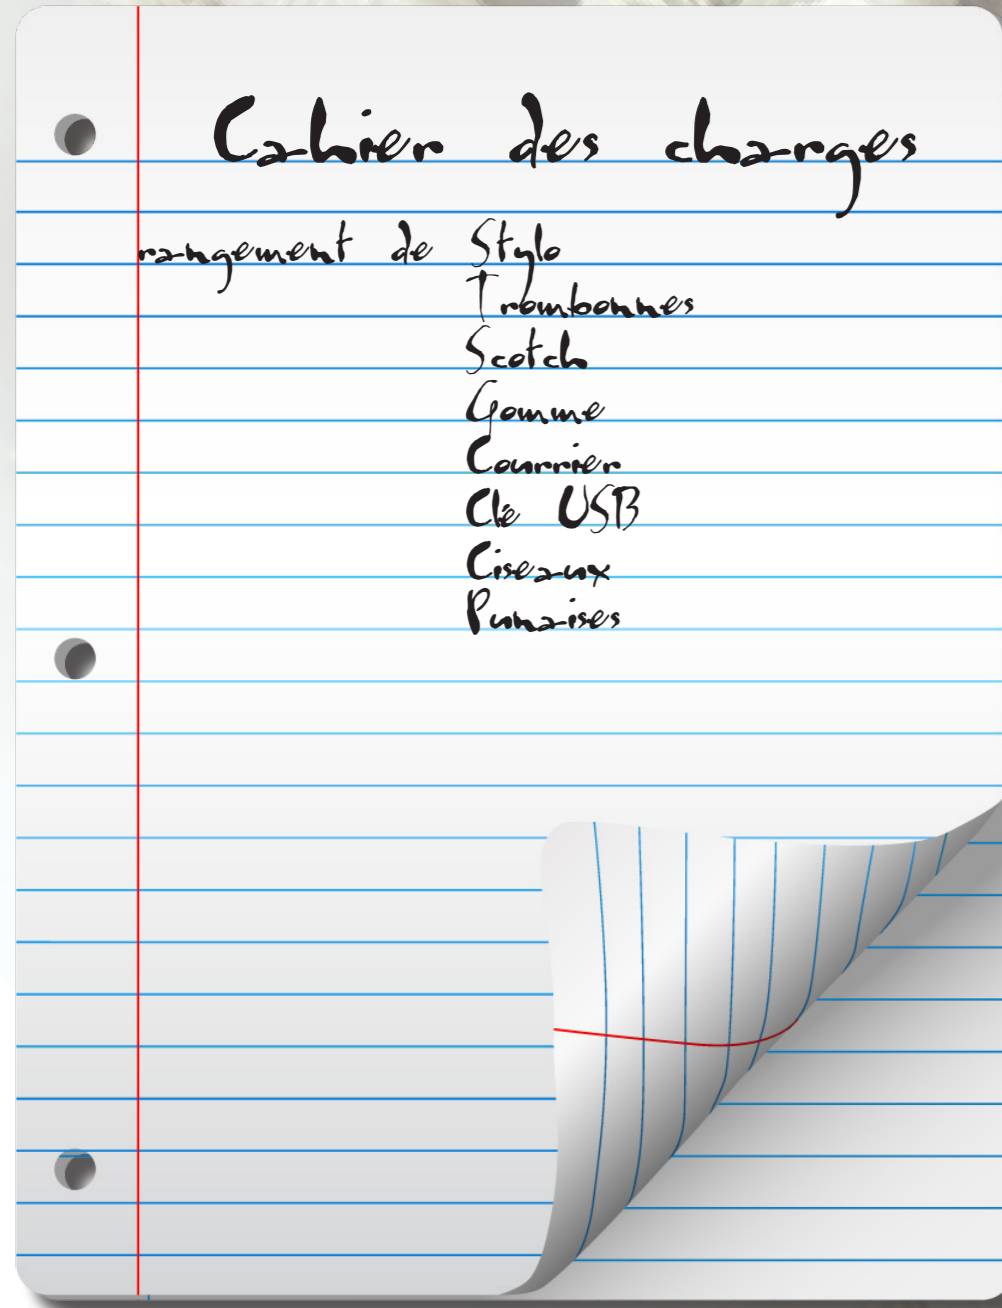 Cahier des charges
rangement de Stylo
Trombonnes
Scotch
Gomme
Courrier
Clé USB
Ciseaux
Punaises